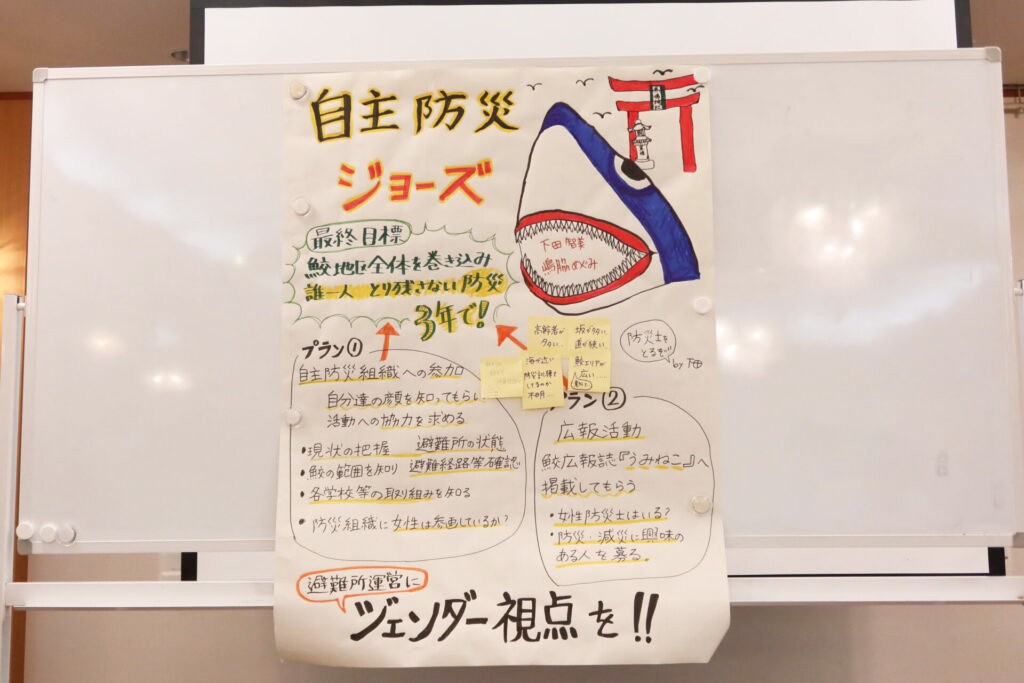 自主防災
ジョーズ
最終目標
鮫地区全体を巻き込み
誰一人 とり残さない防災
3年で!
下田 智美
嶋脇めぐみ
高齢者が
多い…
坂が多い、
道が狭い…
海が近い
防災訓練を
してるのか
不明…
鮫エリアが
広い…
防災士を
とるぞ!!
by 下田
プラン①
自主防災組織への参加
自分達の顔を知ってもらい
活動への協力を求める
・現状の把握 避難所の状態
・鮫の範囲を知り 避難経路等確認
・各学校等の取り組みを知る
・防災組織に女性は参画しているか?
プラン②
広報活動
鮫広報誌『うみねこ』へ
掲載してもらう
・女性防災士はいる?
・防災・減災に興味の
ある人を募る。
避難所運営に
ジェンダー視点を!!